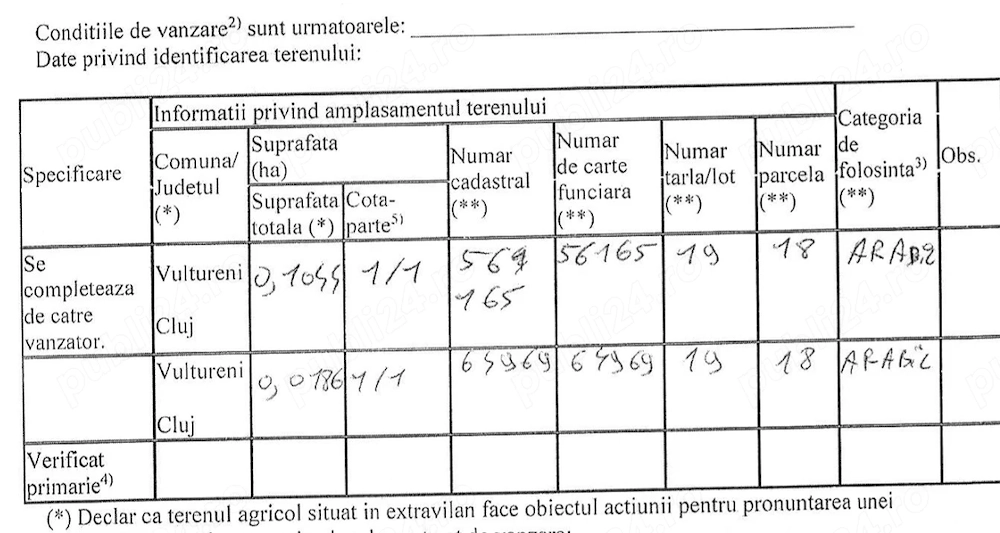 Conditiile de vanzare2) sunt urmatoarele:
Date privind identificarea terenului:
Informatii privind amplasamentul terenului
Specificare
Comuna/
Judetul
(*)
Suprafata
(ha)
Suprafata
totala (*)
Cota-
parte5)
Numar
cadastral
(**)
Numar
de carte
funciara
(**)
Numar
tarla/lot
(**)
Numar
parcela
(**)
Categoria
de
folosinta3)
(**)
Obs.
Se
completeaza
de catre
vanzator.
Vultureni
Cluj
1/1
165
56165
19
18
ARABIL
Vultureni
Cluj
0,0186
1/1
19
18
ARABIL
Verificat
primarie4)
(*) Declar ca terenul agricol situat in extravilan face obiectul actiunii pentru pronuntarea unei